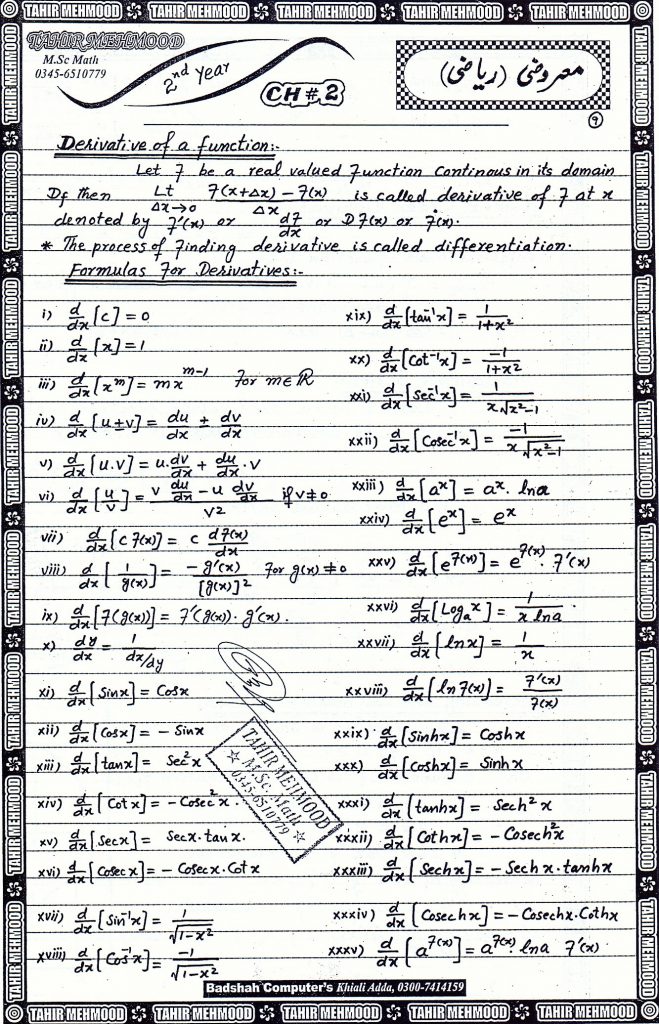 TAHIR MEHMOOD TAHIR MEHMOOD TAHIR MEHMOOD TAHIR MEHMOOD TAHIR MEHMOOD
TAHIR MEHMOOD
M.Sc Math
0345-6510779
2nd Year
CH # 2
معروضی (ریاضی)
9
Derivative of a function:-
Let f be a real valued function continous in its domain
Df then Lt Δx→0 f(x+Δx) – f(x) / Δx is called derivative of f at x
denoted by f'(x) or df/dx or Df(x) or ḟ(x).
* The process of finding derivative is called differentiation.
Formulas For Derivatives:-
i) d/dx [c] = 0
ii) d/dx [x] = 1
iii) d/dx [x^m] = m x^(m-1) for m ∈ R
iv) d/dx [u ± v] = du/dx ± dv/dx
v) d/dx [u.v] = u.dv/dx + du/dx . v
vi) d/dx [u/v] = v du/dx – u dv/dx / v² if v ≠ 0
vii) d/dx [c f(x)] = c df(x)/dx
viii) d/dx [1/g(x)] = –g'(x)/[g(x)]² for g(x) ≠ 0
ix) d/dx [f(g(x))] = f'(g(x)). g'(x).
x) dy/dx = 1/dx/dy
xi) d/dx [Sinx] = Cosx
xii) d/dx [Cosx] = – Sinx
xiii) d/dx [tanx] = Sec²x
xiv) d/dx [Cotx] = –Cosec²x.
xv) d/dx [Secx] = Secx.tanx.
xvi) d/dx [Cosecx] = – Cosecx.Cotx
xvii) d/dx [Sin⁻¹x] = 1/√(1–x²)
xviii) d/dx [Cos⁻¹x] = –1/√(1–x²)
xix) d/dx [tan⁻¹x] = 1/(1+x²)
xx) d/dx [Cot⁻¹x] = –1/(1+x²)
xxi) d/dx [Sec⁻¹x] = 1/(x√(x²–1))
xxii) d/dx [Cosec⁻¹x] = –1/(x√(x²–1))
xxiii) d/dx [a^x] = a^x. lna
xxiv) d/dx [e^x] = e^x
xxv) d/dx [e^f(x)] = e^f(x). f'(x)
xxvi) d/dx [Log_a x] = 1/(x lna).
xxvii) d/dx [lnx] = 1/x
xxviii) d/dx [ln f(x)] = f'(x)/f(x)
xxix) d/dx [Sinhx] = Coshx
xxx) d/dx [Coshx] = Sinhx
xxxi) d/dx [tanhx] = Sech²x
xxxii) d/dx [Cothx] = – Cosech²x
xxxiii) d/dx [Sechx] = – Sechx.tanhx
xxxiv) d/dx [Cosechx] = –Cosechx.Cothx
xxxv) d/dx [a^f(x)] = a^f(x). lna f'(x)
TAHIR MEHMOOD
M.Sc. Math
0345-6510779
Badshah Computer's Khiali Adda, 0300-7414159
TAHIR MEHMOOD TAHIR MEHMOOD TAHIR MEHMOOD TAHIR MEHMOOD TAHIR MEHMOOD